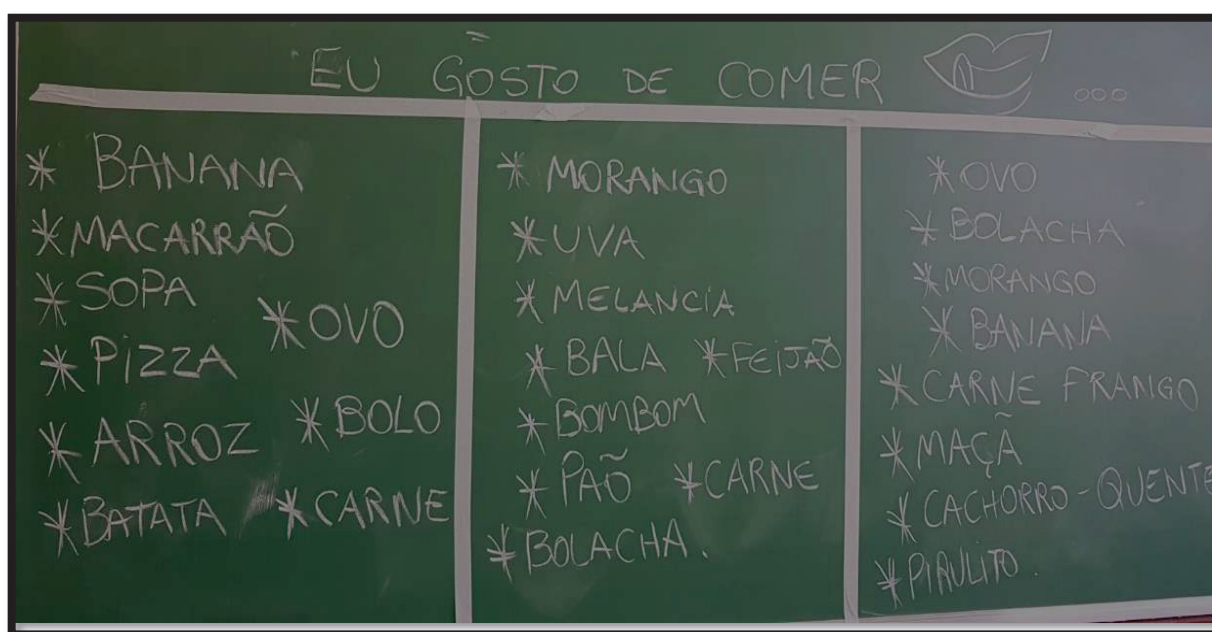 EU GOSTO DE COMER ...
* BANANA
* MACARRÃO
* SOPA
* OVO
* PIZZA
* ARROZ * BOLO
* BATATA * CARNE
* MORANGO
* UVA
* MELANCIA
* BALA * FEIJÃO
* BOMBOM
* PAÕ * CARNE
* BOLACHA.
* OVO
* BOLACHA
* MORANGO
* BANANA
* CARNE FRANGO
* MAÇÃ
* CACHORRO-QUENTE
* PIRULITO.